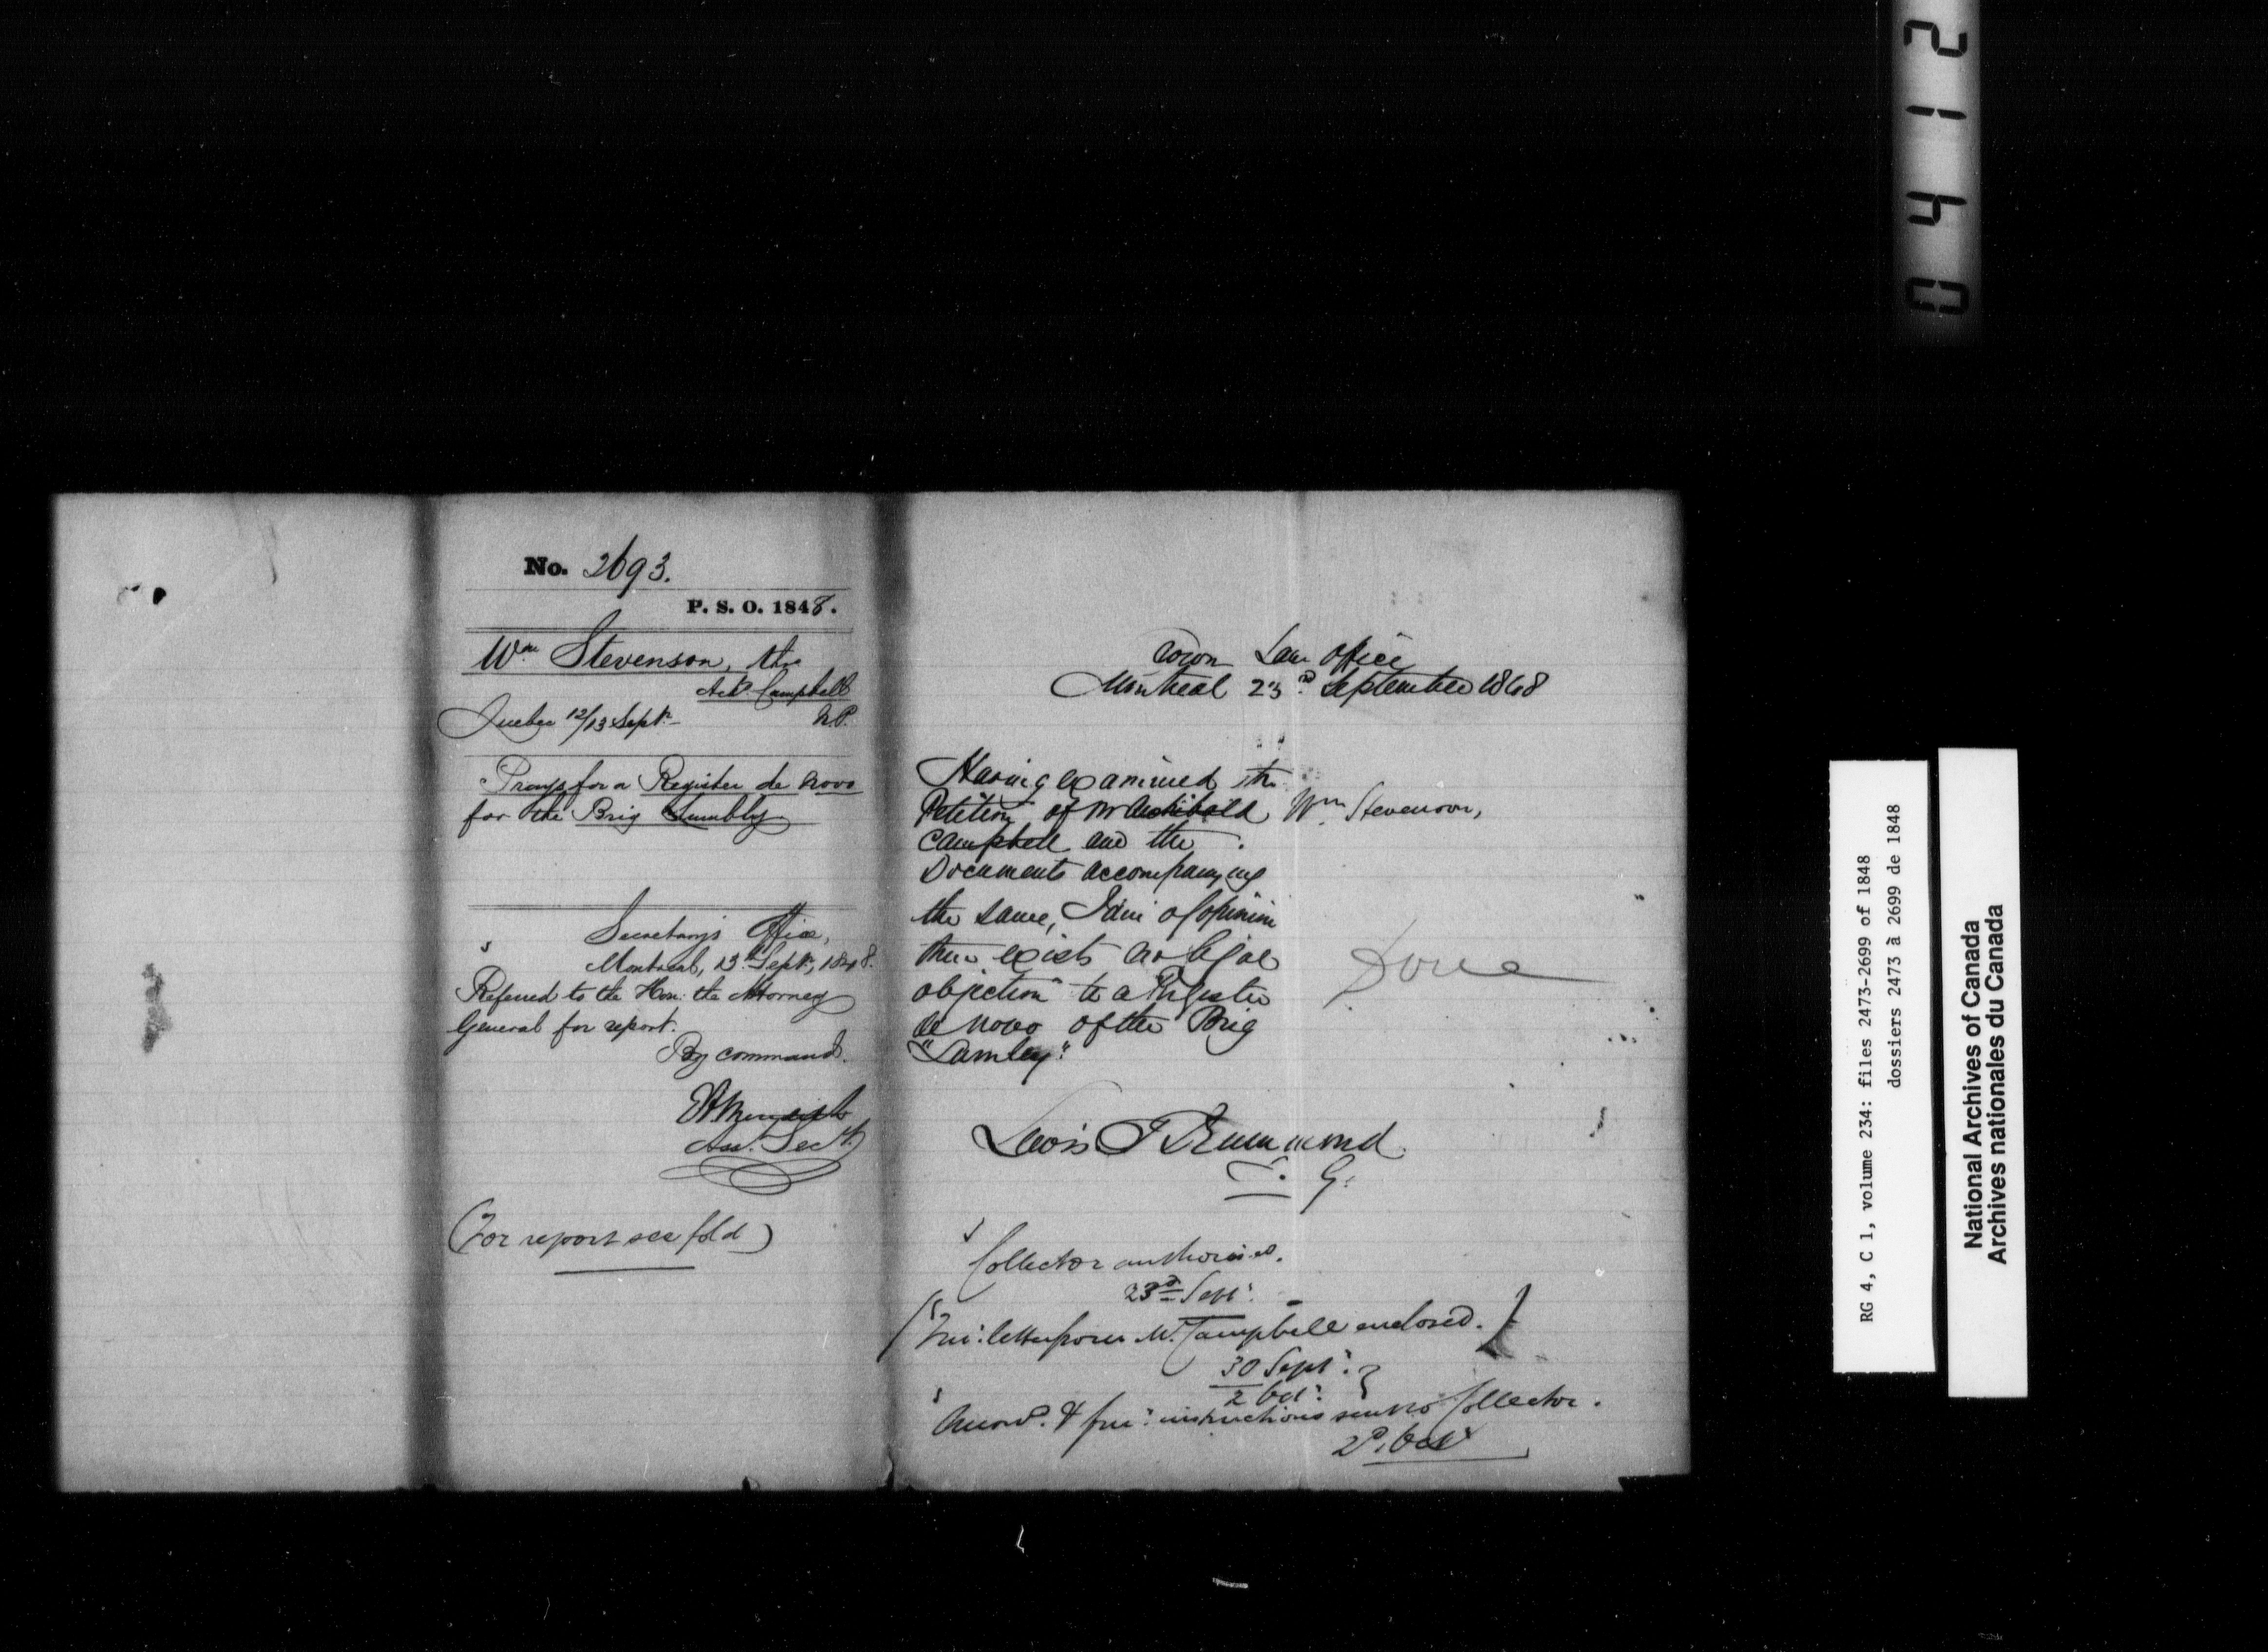 No. 2693.
P. S. O. 1848.
Wm. Stevenson, thro
Archd. Campbell
N.P.
Quebec 12/13 Sept.
Prays for a Register de novo
for the Brig
Secretary's Office,
Montreal, 13th Sept., 1848.
Referred to the Hon: the Attorney
General for report.
By command.
Ass. Secy.
(For report see fold)
Crown Law Office
Montreal 23rd September 1848
Having examined the
Petition of Mr Archibald Wm. Stevenson,
Campbell and the
Documents accompanying
the same, I am of opinion
there exists no legal
objection to a Register
de novo of the Brig
"Lumley".
Done
Lewis T Drummond
S. G.
Collector authorised.
23rd Sept.
letter from Mr. Campbell enclosed.
30 Sept.
2 Oct.
Answd. & instructions sent to Collector.
2d. Oct
0412
RG 4, C 1, volume 234: files 2473-2699 of 1848
dossiers 2473 à 2699 de 1848
National Archives of Canada
Archives nationales du Canada